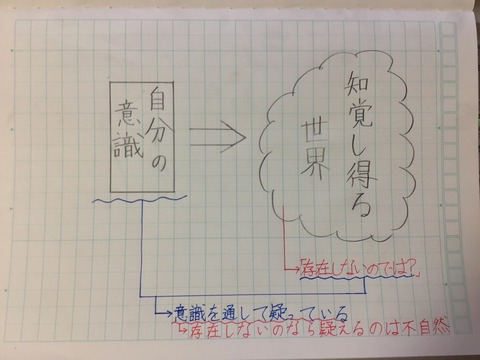 自分の
意識
知覚し得る
世界
「存在しないのでは?」
意識を通して疑っている
存在しないのなら疑えるのは不自然